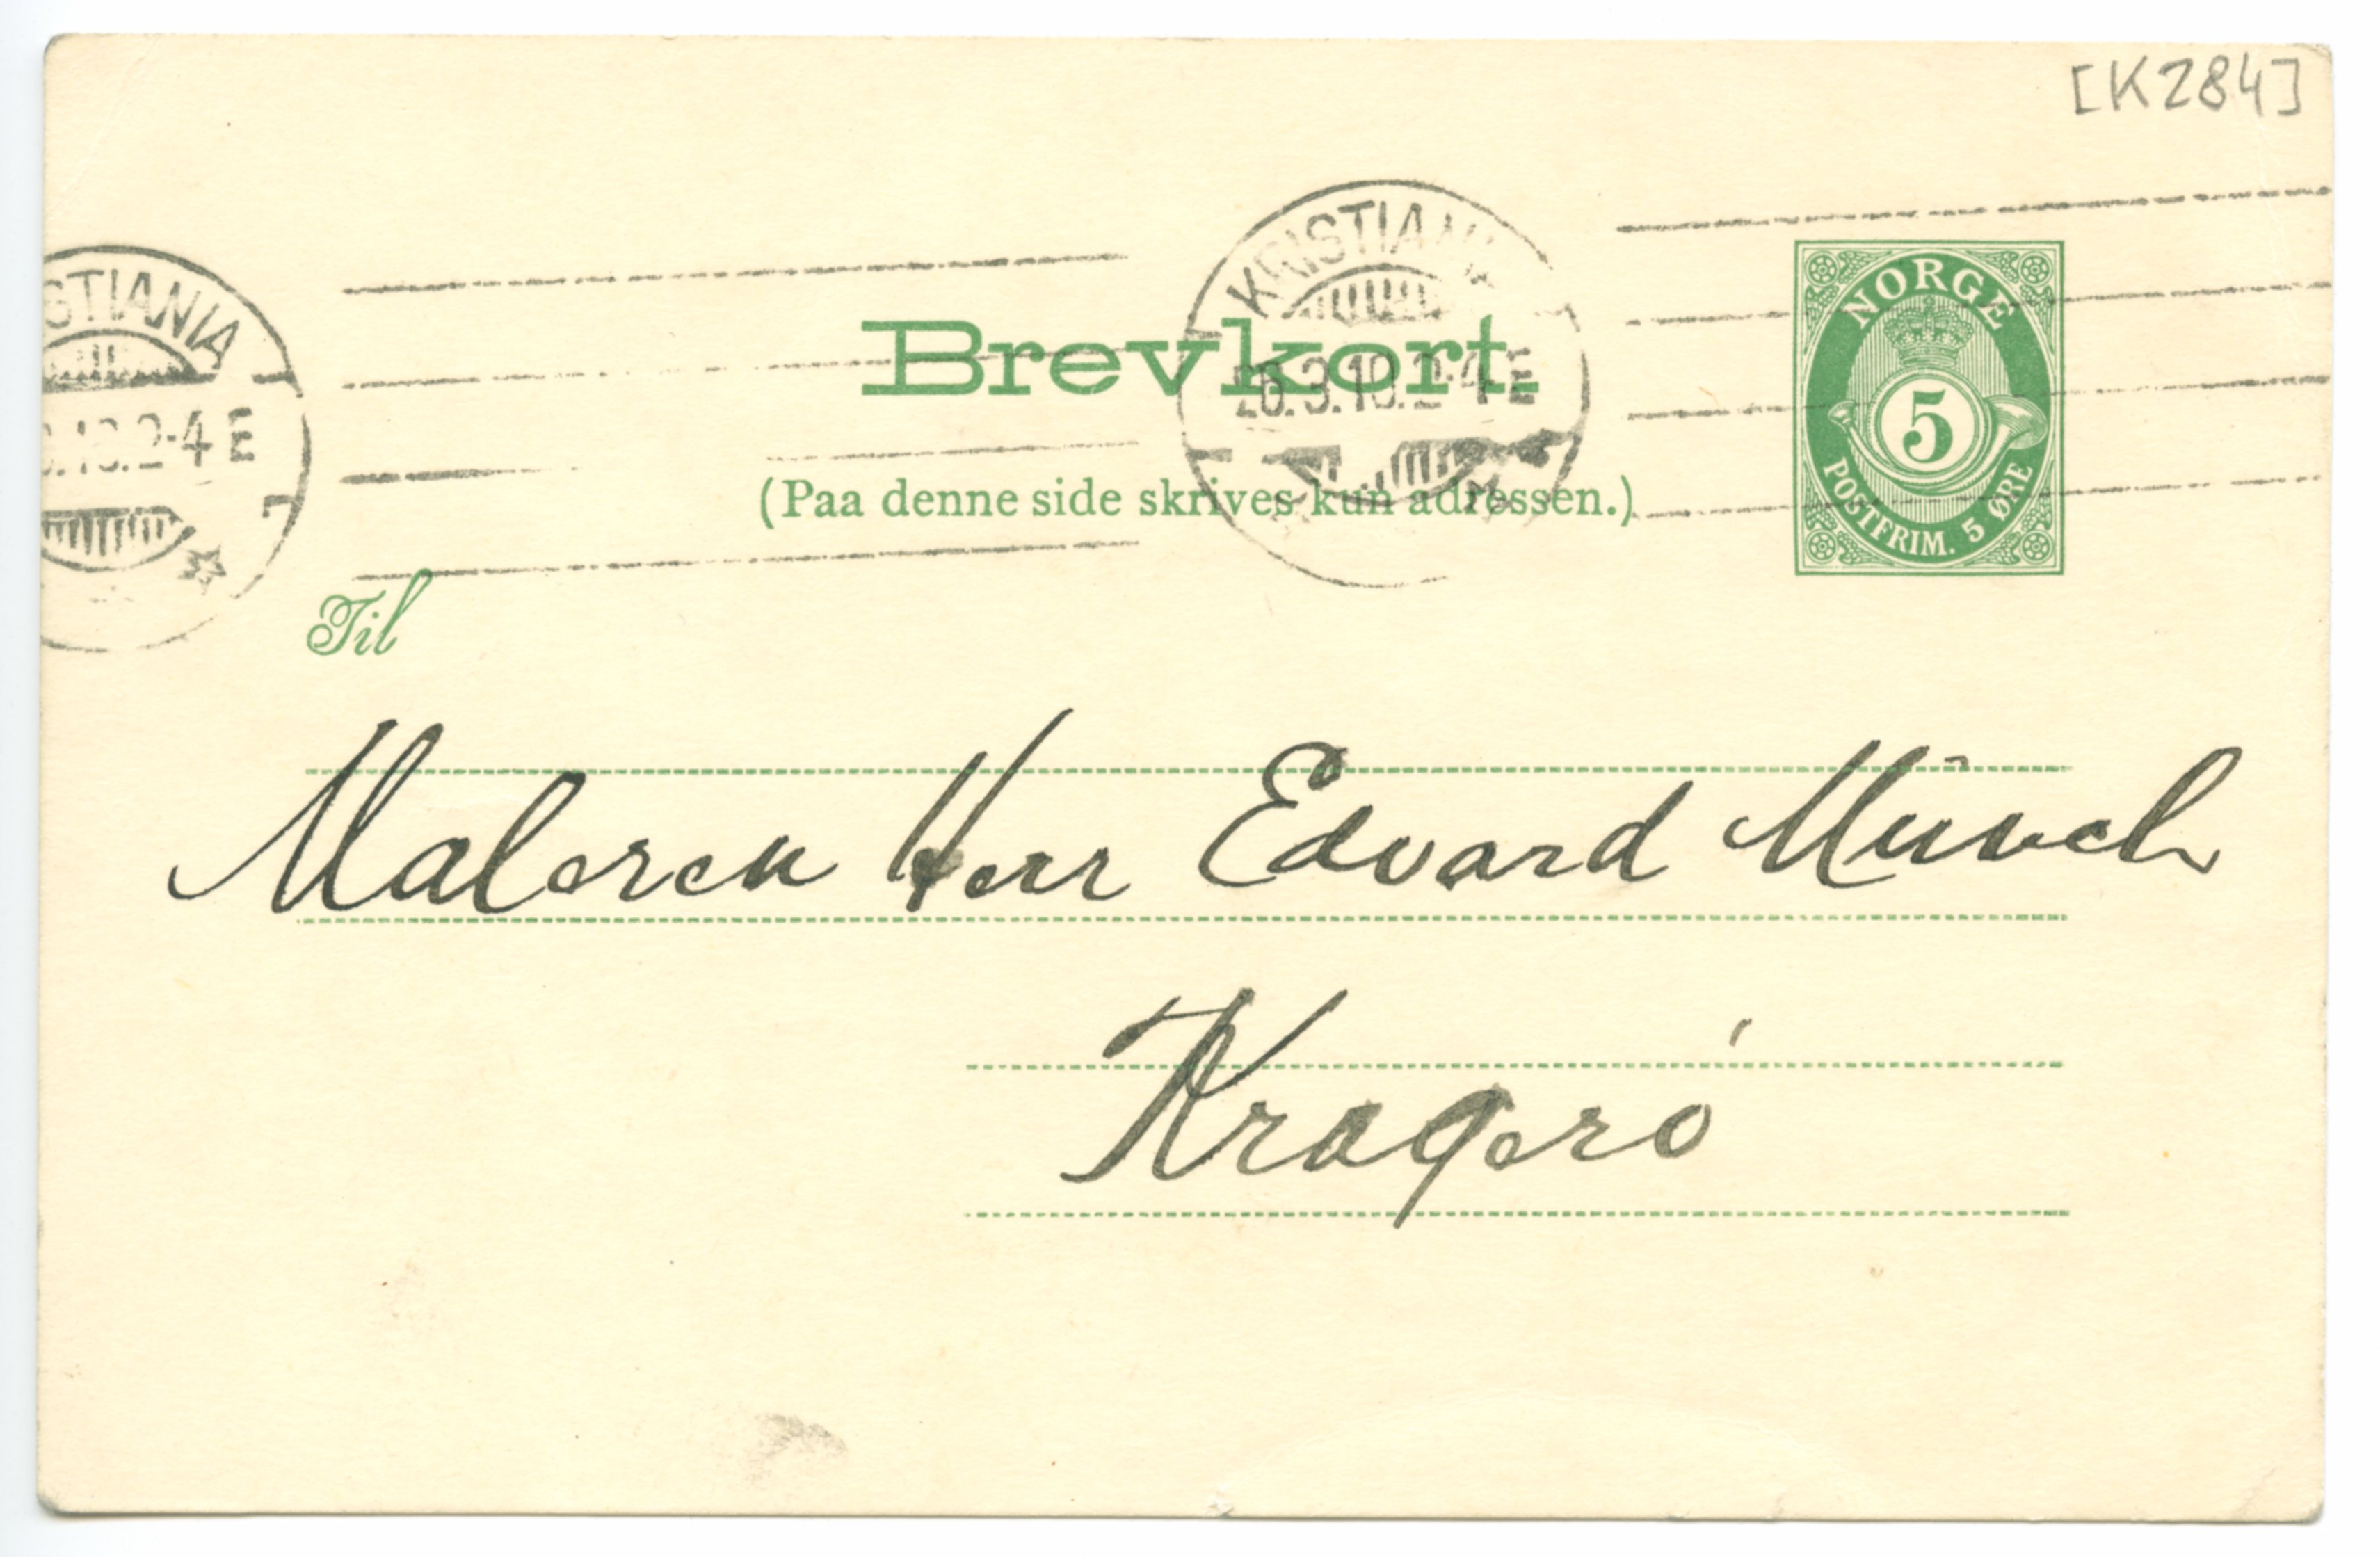 [K284]
KRISTIANIA
STIANIA
26.3.10.2-4 E
.10.2-4 E
L
NORGE
5
POSTFRIM. 5 ØRE
Brevkort.
(Paa denne side skrives kun adressen.)
Til
Maleren Herr Edvard Munch
Kragerö